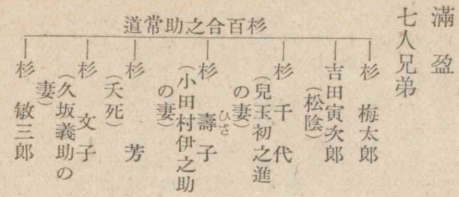 滿盈
七人兄弟
杉百合之助常道
杉 梅太郎
吉田寅次郎
(松陰)
杉 千代
(兒玉初之進
の妻)
杉 壽子
ひさ
(小田村伊之助
の妻)
杉 芳
(夭死)
杉 文子
(久坂義助の
妻)
杉 敏三郎